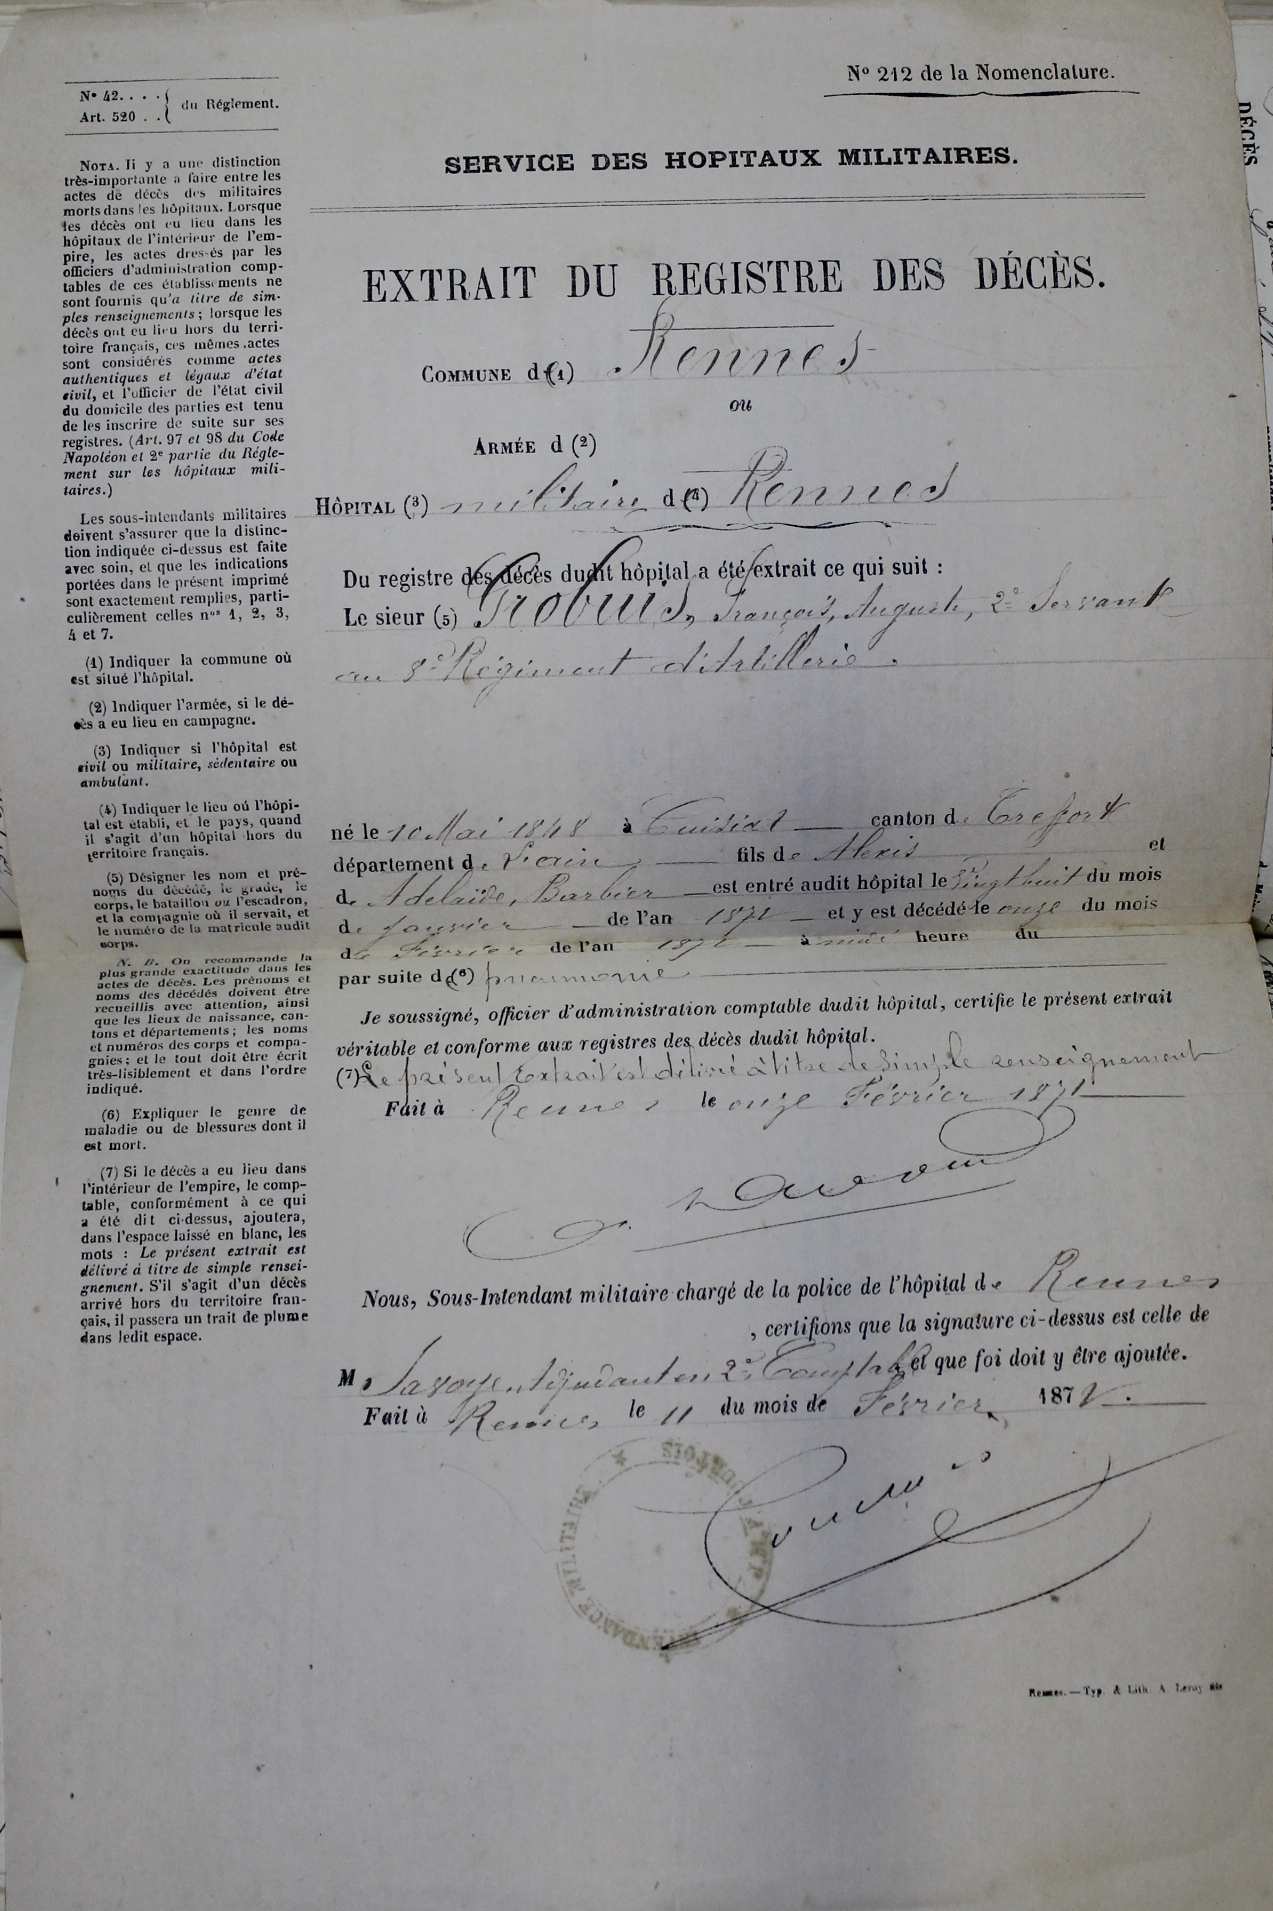 N° 212 de la Nomenclature.
N° 42. . . .
Art. 520 . .
du Réglement.
SERVICE DES HOPITAUX MILITAIRES.
EXTRAIT DU REGISTRE DES DÉCÈS.
COMMUNE de (1) Rennes
ou
ARMÉE d (2)
HÔPITAL (3) militaire de (4) Rennes
Du registre des décès dudit hôpital a été extrait ce qui suit :
Le sieur (5) Grobuis, François, Auguste, 2e Servant
au 8e Régiment d'Artillerie.
né le 10 Mai 1848 à Cuisiat canton de Treffort
département de l'ain fils de Alexis et
d. Adelaïde, Barbier est entré audit hôpital le Vingt huit du mois
de Janvier de l'an 1871 et y est décédé le onze du mois
de Février de l'an 1871 à midi heure du
par suite de (6) pneumonie
Je soussigné, officier d'administration comptable dudit hôpital, certifie le présent extrait
véritable et conforme aux registres des décès dudit hôpital.
(7) Le présent Extrait est délivré à titre de simple renseignement
Fait à Rennes le onze Février 1871
Nous, Sous-Intendant militaire chargé de la police de l'hôpital de Rennes
, certifions que la signature ci-dessus est celle de
M. adjudant en 2e Comptable et que foi doit y être ajoutée.
Fait à Rennes le 11 du mois de Février 1871.
INTENDANCE MILITAIRE
Rennes. — Typ. & Lith. A. Leroy fils
NOTA. Il y a une distinction
très-importante a faire entre les
actes de décès des militaires
morts dans les hôpitaux. Lorsque
les décès ont eu lieu dans les
hôpitaux de l'intérieur de l'em-
pire, les actes dressés par les
officiers d'administration comp-
tables de ces établissements ne
sont fournis qu'a titre de sim-
ples renseignements; lorsque les
décès ont eu lieu hors du terri-
toire français, ces mêmes actes
sont considérés comme actes
authentiques et légaux d'état
civil, et l'officier de l'état civil
du domicile des parties est tenu
de les inscrire de suite sur ses
registres. (Art. 97 et 98 du Code
Napoléon et 2e partie du Régle-
ment sur les hôpitaux mili-
taires.)
Les sous-intendants militaires
doivent s'assurer que la distinc-
tion indiquée ci-dessus est faite
avec soin, et que les indications
portées dans le présent imprimé
sont exactement remplies, parti-
culièrement celles nos 1, 2, 3,
4 et 7.
(1) Indiquer la commune où
est situé l'hôpital.
(2) Indiquer l'armée, si le dé-
cès a eu lieu en campagne.
(3) Indiquer si l'hôpital est
civil ou militaire, sédentaire ou
ambulant.
(4) Indiquer le lieu où l'hôpi-
tal est établi, et le pays, quand
il s'agit d'un hôpital hors du
territoire français.
(5) Désigner les nom et pré-
noms du décédé, le grade, le
corps, le bataillon ou l'escadron,
et la compagnie où il servait, et
le numéro de la matricule audit
corps.
N. B. On recommande la
plus grande exactitude dans les
actes de décès. Les prénoms et
noms des décédés doivent être
recueillis avec attention, ainsi
que les lieux de naissance, can-
tons et départements; les noms
et numéros des corps et compa-
gnies; et le tout doit être écrit
très-lisiblement et dans l'ordre
indiqué.
(6) Expliquer le genre de
maladie ou de blessures dont il
est mort.
(7) Si le décès a eu lieu dans
l'intérieur de l'empire, le comp-
table, conformément à ce qui
a été dit ci-dessus, ajoutera,
dans l'espace laissé en blanc, les
mots : Le présent extrait est
délivré à titre de simple rensei-
gnement. S'il s'agit d'un décès
arrivé hors du territoire fran-
çais, il passera un trait de plume
dans ledit espace.
DÉCÈS